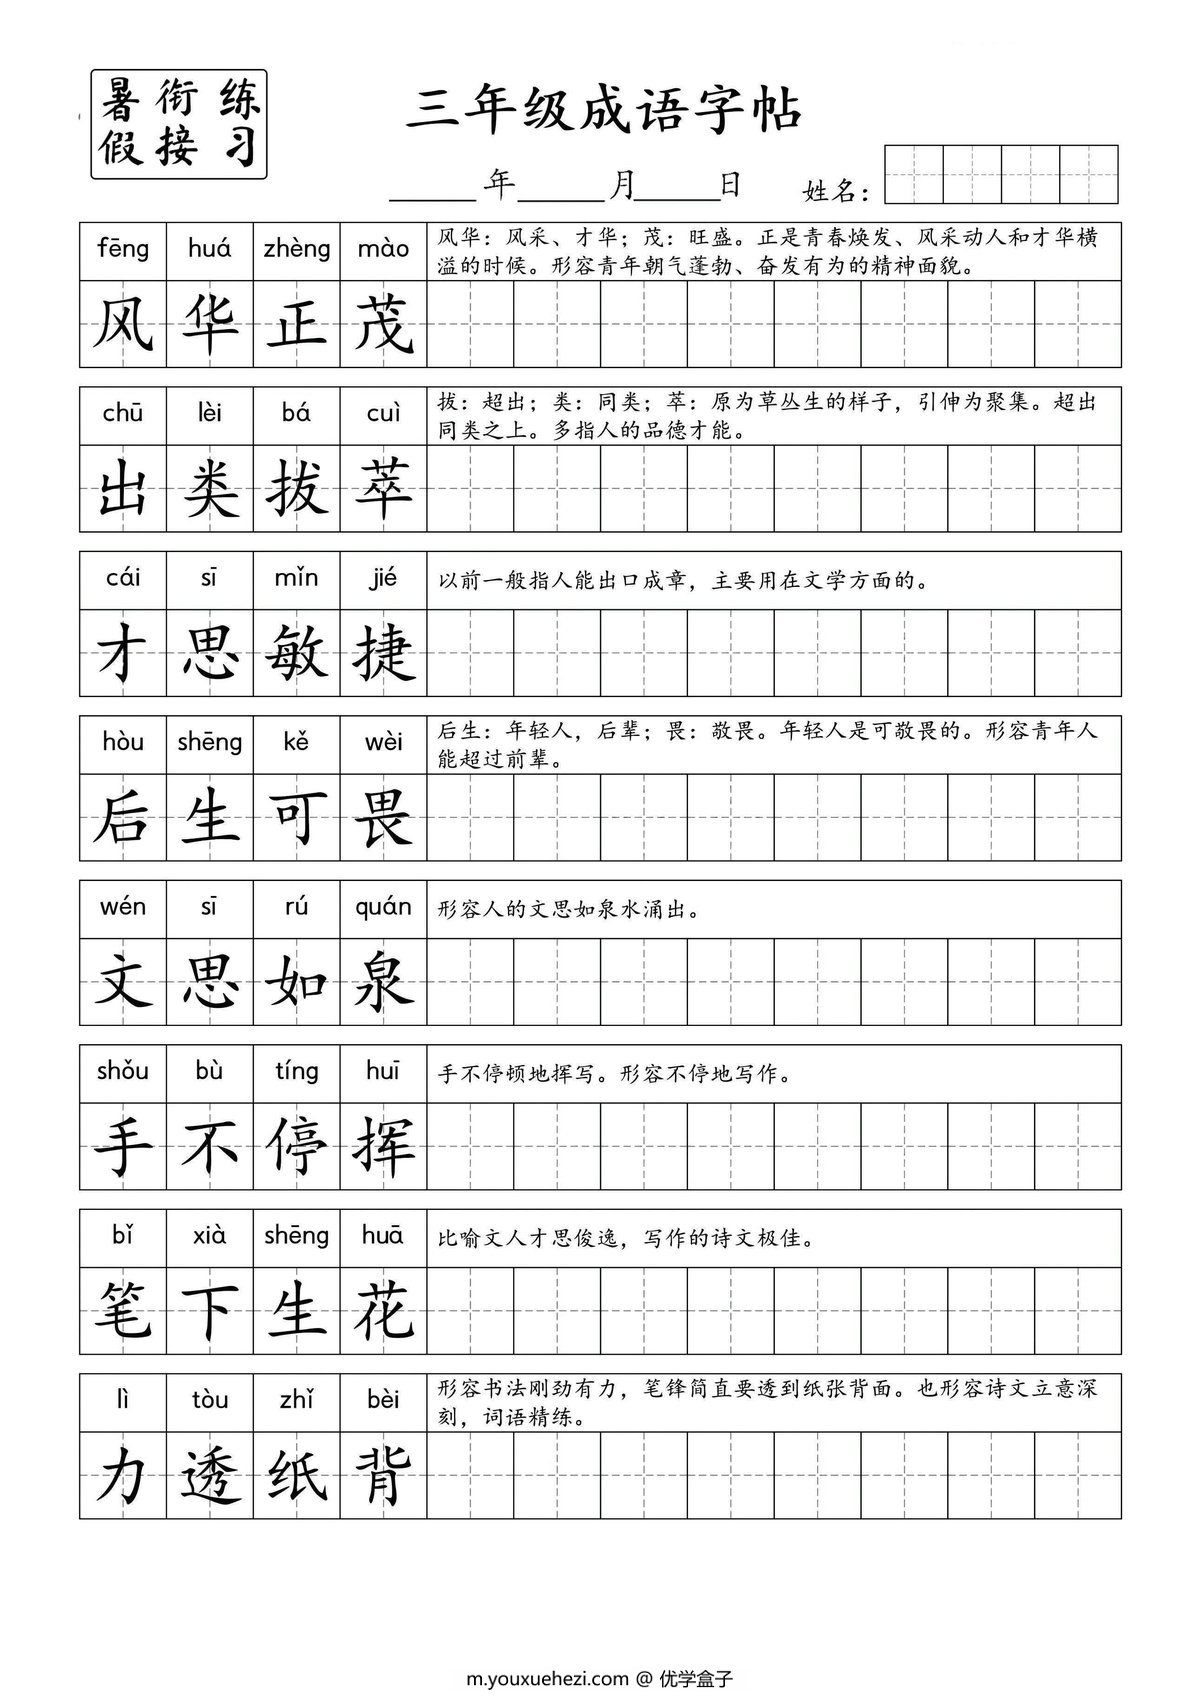 暑衔练
假接习
三年级成语字帖
______年______月______日 姓名：
fēng huá zhèng mào
风华：风采、才华；茂：旺盛。正是青春焕发、风采动人和才华横
溢的时候。形容青年朝气蓬勃、奋发有为的精神面貌。
风华正茂
chū lèi bá cuì
拔：超出；类：同类；萃：原为草丛生的样子，引伸为聚集。超出
同类之上。多指人的品德才能。
出类拔萃
cái sī mǐn jié
以前一般指人能出口成章，主要用在文学方面的。
才思敏捷
hòu shēng kě wèi
后生：年轻人，后辈；畏：敬畏。年轻人是可敬畏的。形容青年人
能超过前辈。
后生可畏
wén sī rú quán
形容人的文思如泉水涌出。
文思如泉
shǒu bù tíng huī
手不停顿地挥写。形容不停地写作。
手不停挥
bǐ xià shēng huā
比喻文人才思俊逸，写作的诗文极佳。
笔下生花
lì tòu zhǐ bèi
形容书法刚劲有力，笔锋简直要透到纸张背面。也形容诗文立意深
刻，词语精练。
力透纸背
m.youxuehezi.com @ 优学盒子